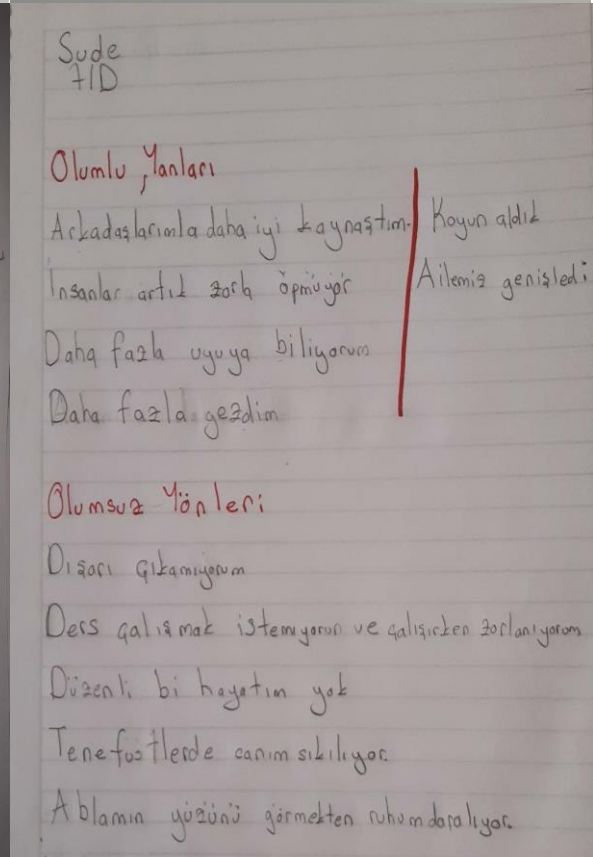 Sude
7/D
Olumlu Yanları
Arkadaşlarımla daha iyi kaynaştım.
İnsanlar artık zorla öpmüyor
Daha fazla uyuya biliyorum
Daha fazla gezdim
Koyun aldık
Ailemiz genişledi
Olumsuz Yönleri
Dışarı Çıkamıyorum
Ders çalışmak istemiyorum ve çalışırken zorlanıyorum
Düzenli bi hayatım yok
Tenefüstlerde canım sıkılıyor.
Ablamın yüzünü görmekten ruhum daralıyor.